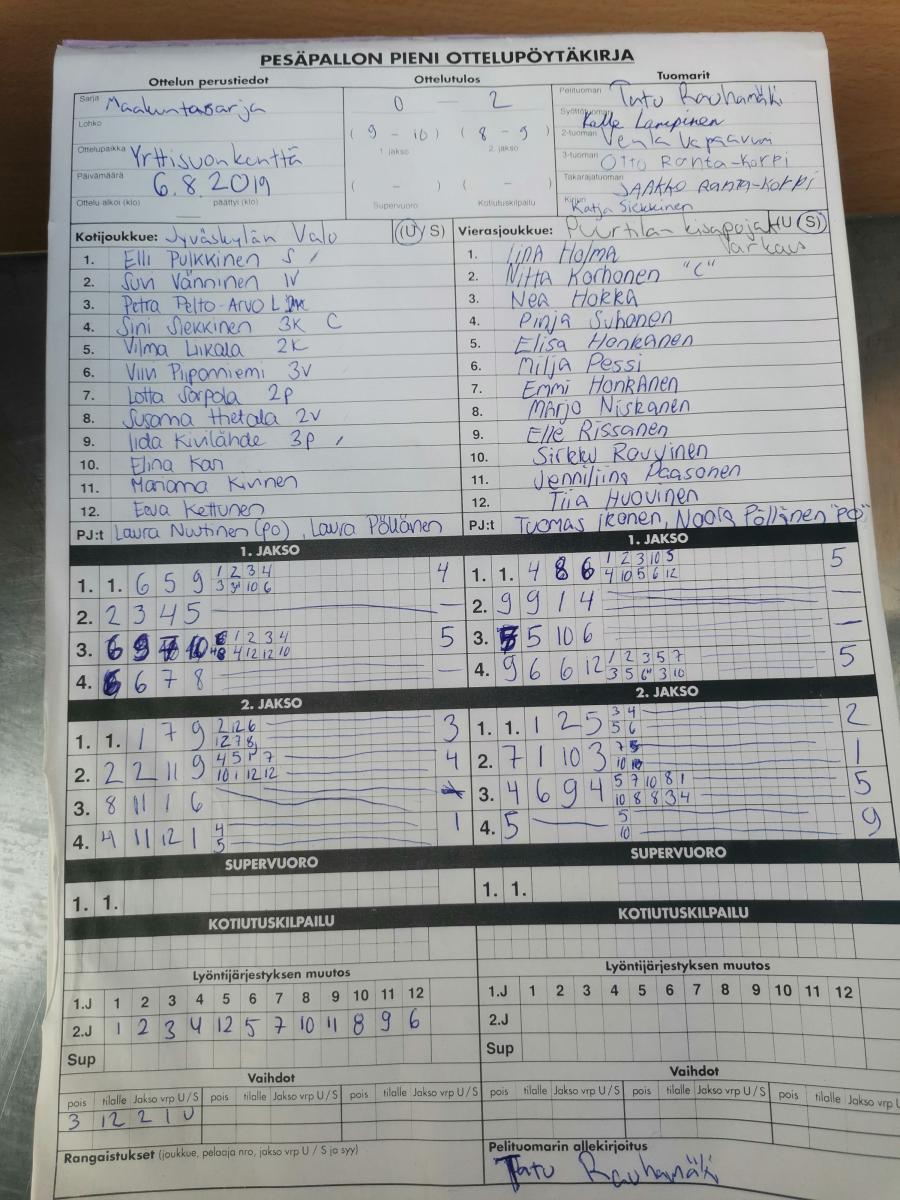 PESÄPALLON PIENI OTTELUPÖYTÄKIRJA
Ottelun perustiedot Ottelutulos Tuomarit
Sarja Maakuntasarja 0 — 2 Pelituomari Tatu Rauhamäki
Lohko Syöttötuomari Kalle Lampinen
(9 - 10) (8 - 9) 2-tuomari Venla Vapaavuori
Ottelupaikka Yrttisuonkenttä 1. jakso 2. jakso 3-tuomari Otto Ranta-Korpi
Päivämäärä 6.8.2019 ( - ) ( - ) Takarajatuomari JAAKKO RANTA-KORPI
Ottelu alkoi (klo) päättyi (klo) Supervuoro Kotiutuskilpailu Kirjuri Katja Siekkinen
Kotijoukkue: Jyväskylän Valo (U/S) Vierasjoukkue: Puurtilan kisapojat (U/S)
Varkaus
1. Elli Pulkkinen S 1. Iina Holma
2. Suvi Vänninen 1V 2. Niitta Korhonen "C"
3. Petra Pelto-Arvo L 3. Nea Hokka
4. Sini Siekkinen 3K C 4. Pinja Suhonen
5. Vilma Liikala 2K 5. Elisa Honkanen
6. Viivi Piiponniemi 3V 6. Milja Pessi
7. Lotta Sorpola 2p 7. Emmi Honkanen
8. Susanna 2V 8. Marjo Niskanen
9. Iida Kivilähde 3p 9. Elle Rissanen
10. Elina Kari 10. Sirkku
11. Marianna Kivinen 11. Jenniliina Paasonen
12. Eeva Kettunen 12. Tiia Huovinen
PJ:t Laura Nuutinen (PO), Laura Pöllänen PJ:t Tuomas Ikonen, Noora Pöllänen "PO"
1. JAKSO 1. JAKSO
1. 1. 6 5 9 1 2 3 4 4 1. 1. 4 8 6 1 2 3 10 5 5
10 6 4 10 5 6 12
2. 2 3 4 5 — 2. 9 9 1 4 —
3. 6 9 10 1 2 3 4 5 3. 5 10 6 —
4 12 12 10
4. 6 6 7 8 — 4. 9 6 6 12 1 2 3 5 7 5
3 5 6 3 10
2. JAKSO 2. JAKSO
1. 1. 1 7 9 2 12 6 3 1. 1. 1 2 5 3 4 2
12 7 8 5 6
2. 2 2 11 9 4 5 1 7 4 2. 7 1 10 3 7 5 1
10 1 12 12 10 10
3. 8 11 1 6 3. 4 6 9 4 5 7 10 8 1 5
10 8 8 3 4
4. 4 11 12 1 4 1 4. 5 — 5 9
5 10
SUPERVUORO SUPERVUORO
1. 1. 1. 1.
KOTIUTUSKILPAILU KOTIUTUSKILPAILU
Lyöntijärjestyksen muutos Lyöntijärjestyksen muutos
1.J 1 2 3 4 5 6 7 8 9 10 11 12 1.J 1 2 3 4 5 6 7 8 9 10 11 12
2.J 1 2 3 4 12 5 7 10 11 8 9 6 2.J
Sup Sup
Vaihdot Vaihdot
pois tilalle Jakso vrp U/S pois tilalle Jakso vrp U/S pois tilalle Jakso vrp U/S pois tilalle Jakso vrp U/S pois tilalle Jakso vrp U/S pois tilalle Jakso vrp U
3 12 2 1 U
Rangaistukset (joukkue, pelaaja nro, jakso vrp U / S ja syy) Pelituomarin allekirjoitus
Tatu Rauhamäki